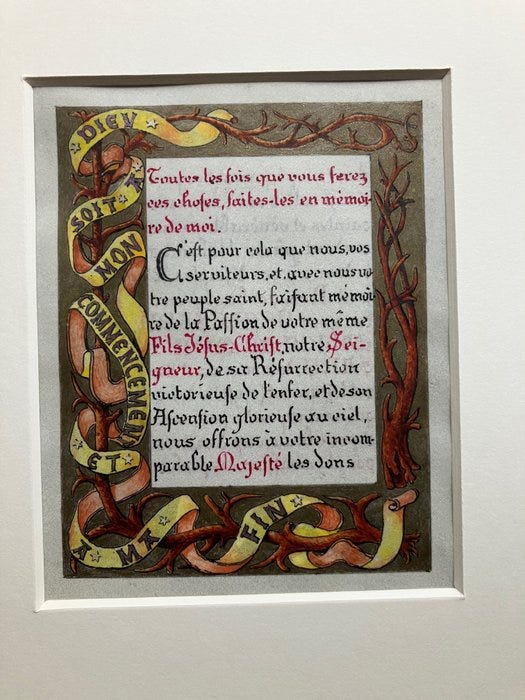 DIEU
SOIT A
MON
COMMENCEMENT
ET
A MA FIN
Toutes les fois que vous ferez
ces choses, faites-les en mémoi-
re de moi.
C'est pour cela que nous, vos
serviteurs, et, avec nous vo
tre peuple saint, faisant mémoi
re de la Passion de votre même
Fils Jésus-Christ, notre Sei-
gneur, de sa Résurrection
victorieuse de l'enfer, et de son
Ascension glorieuse au ciel,
nous offrons à votre incom-
parable Majesté les dons